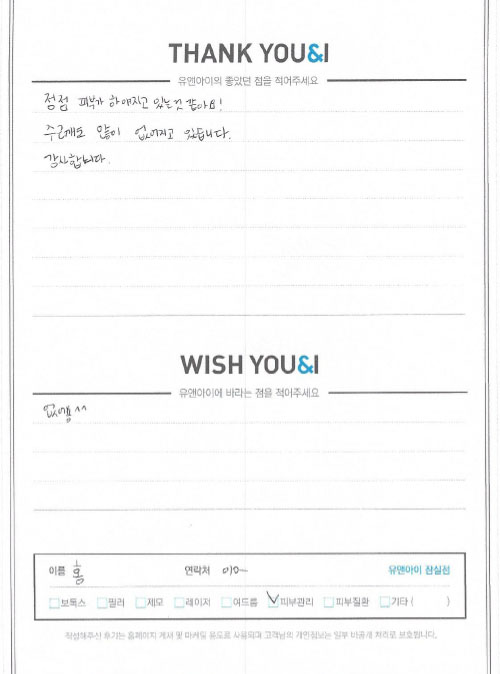 THANK YOU&I
유앤아이의 좋았던 점을 적어주세요
점점 피부가 하얘지고 있는것 같아요!
주근깨도 많이 없어지고 있습니다.
감사합니다.
WISH YOU&I
유앤아이에 바라는 점을 적어주세요
없어용^^
이름 홍 연락처 010- 유앤아이 잠실점
보톡스 필러 제모 레이저 여드름 피부관리 피부질환 기타 ( )
작성해주신 후기는 홈페이지 게시 및 마케팅 용도로 사용되며 고객님의 개인정보는 일부 비공개 처리로 보호됩니다.